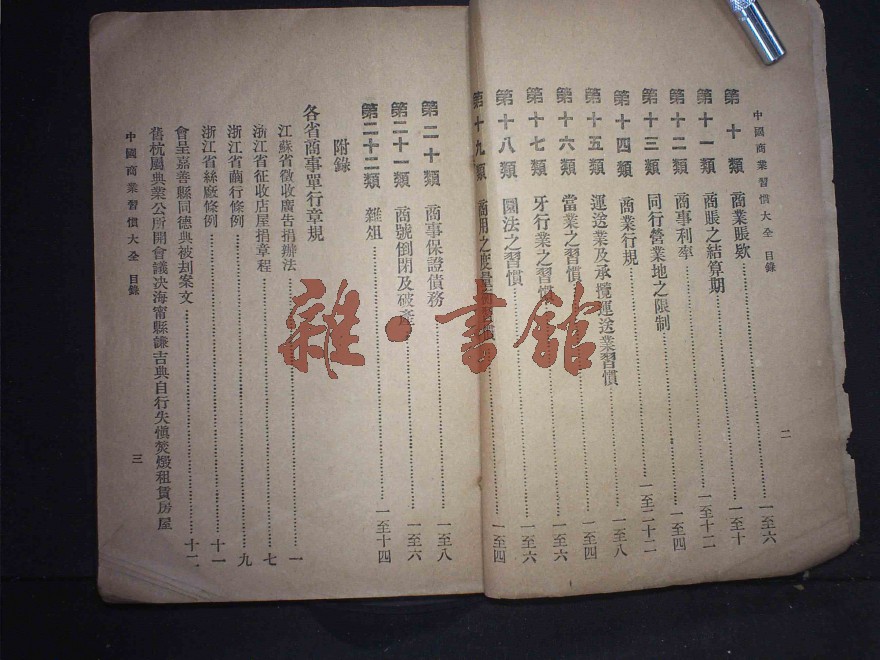 中國商業習慣大全 目錄 二
第十類 商業賬欵……一至六
第十一類 商賬之結算期……一至十
第十二類 商事利率……一至十二
第十三類 同行營業地之限制……一至四
第十四類 商業行規……一至二十二
第十五類 運送業及承攬運送業習慣……一至八
第十六類 當業之習慣……一至四
第十七類 牙行業之習慣……一至六
第十八類 圜法之習慣……一至六
第十九類 商用之度量 習慣……一至四
第二十類 商事保證債務……一至八
第二十一類 商號倒閉及破產……一至六
第二十二類 雜俎……一至十四
附錄
各省商事單行章規
江蘇省徵收廣告捐辦法……一
浙江省征收店屋捐章程……七
浙江省繭行條例……九
浙江省絲廠條例……十一
會呈嘉善縣同德典被刦案文……十二
舊杭屬典業公所開會議决海甯縣謙吉典自行失慎焚燬租賃房屋
中國商業習慣大全 目錄 三
雜·書館